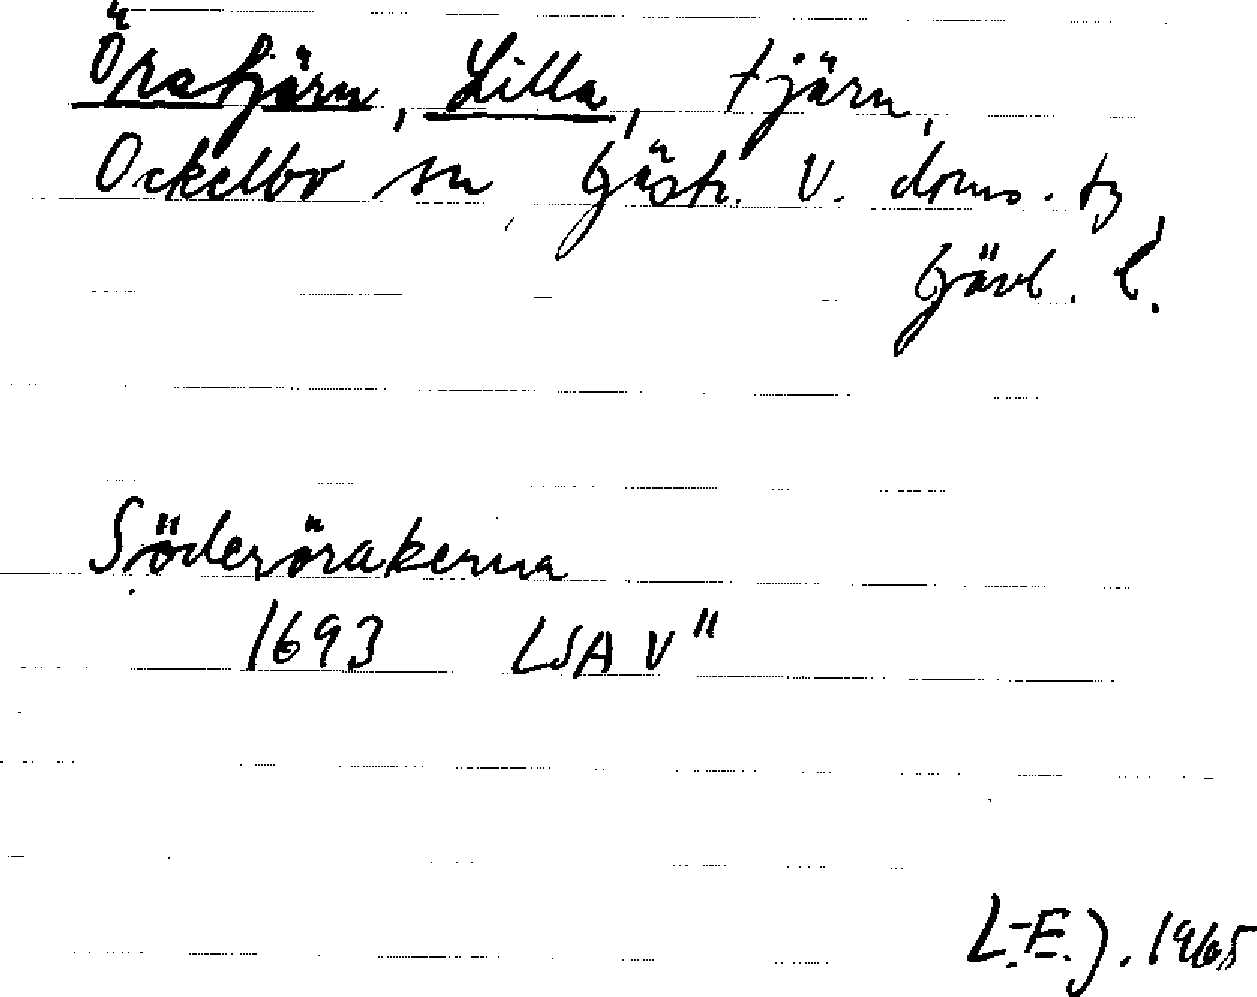 Öratjärn, Lilla, tjärn,
Ockelbo sn, Gästr. V. doms. tg,
Gävl. l.
Söderörakerna
1693 LSA V"
L.-E. J. 1965